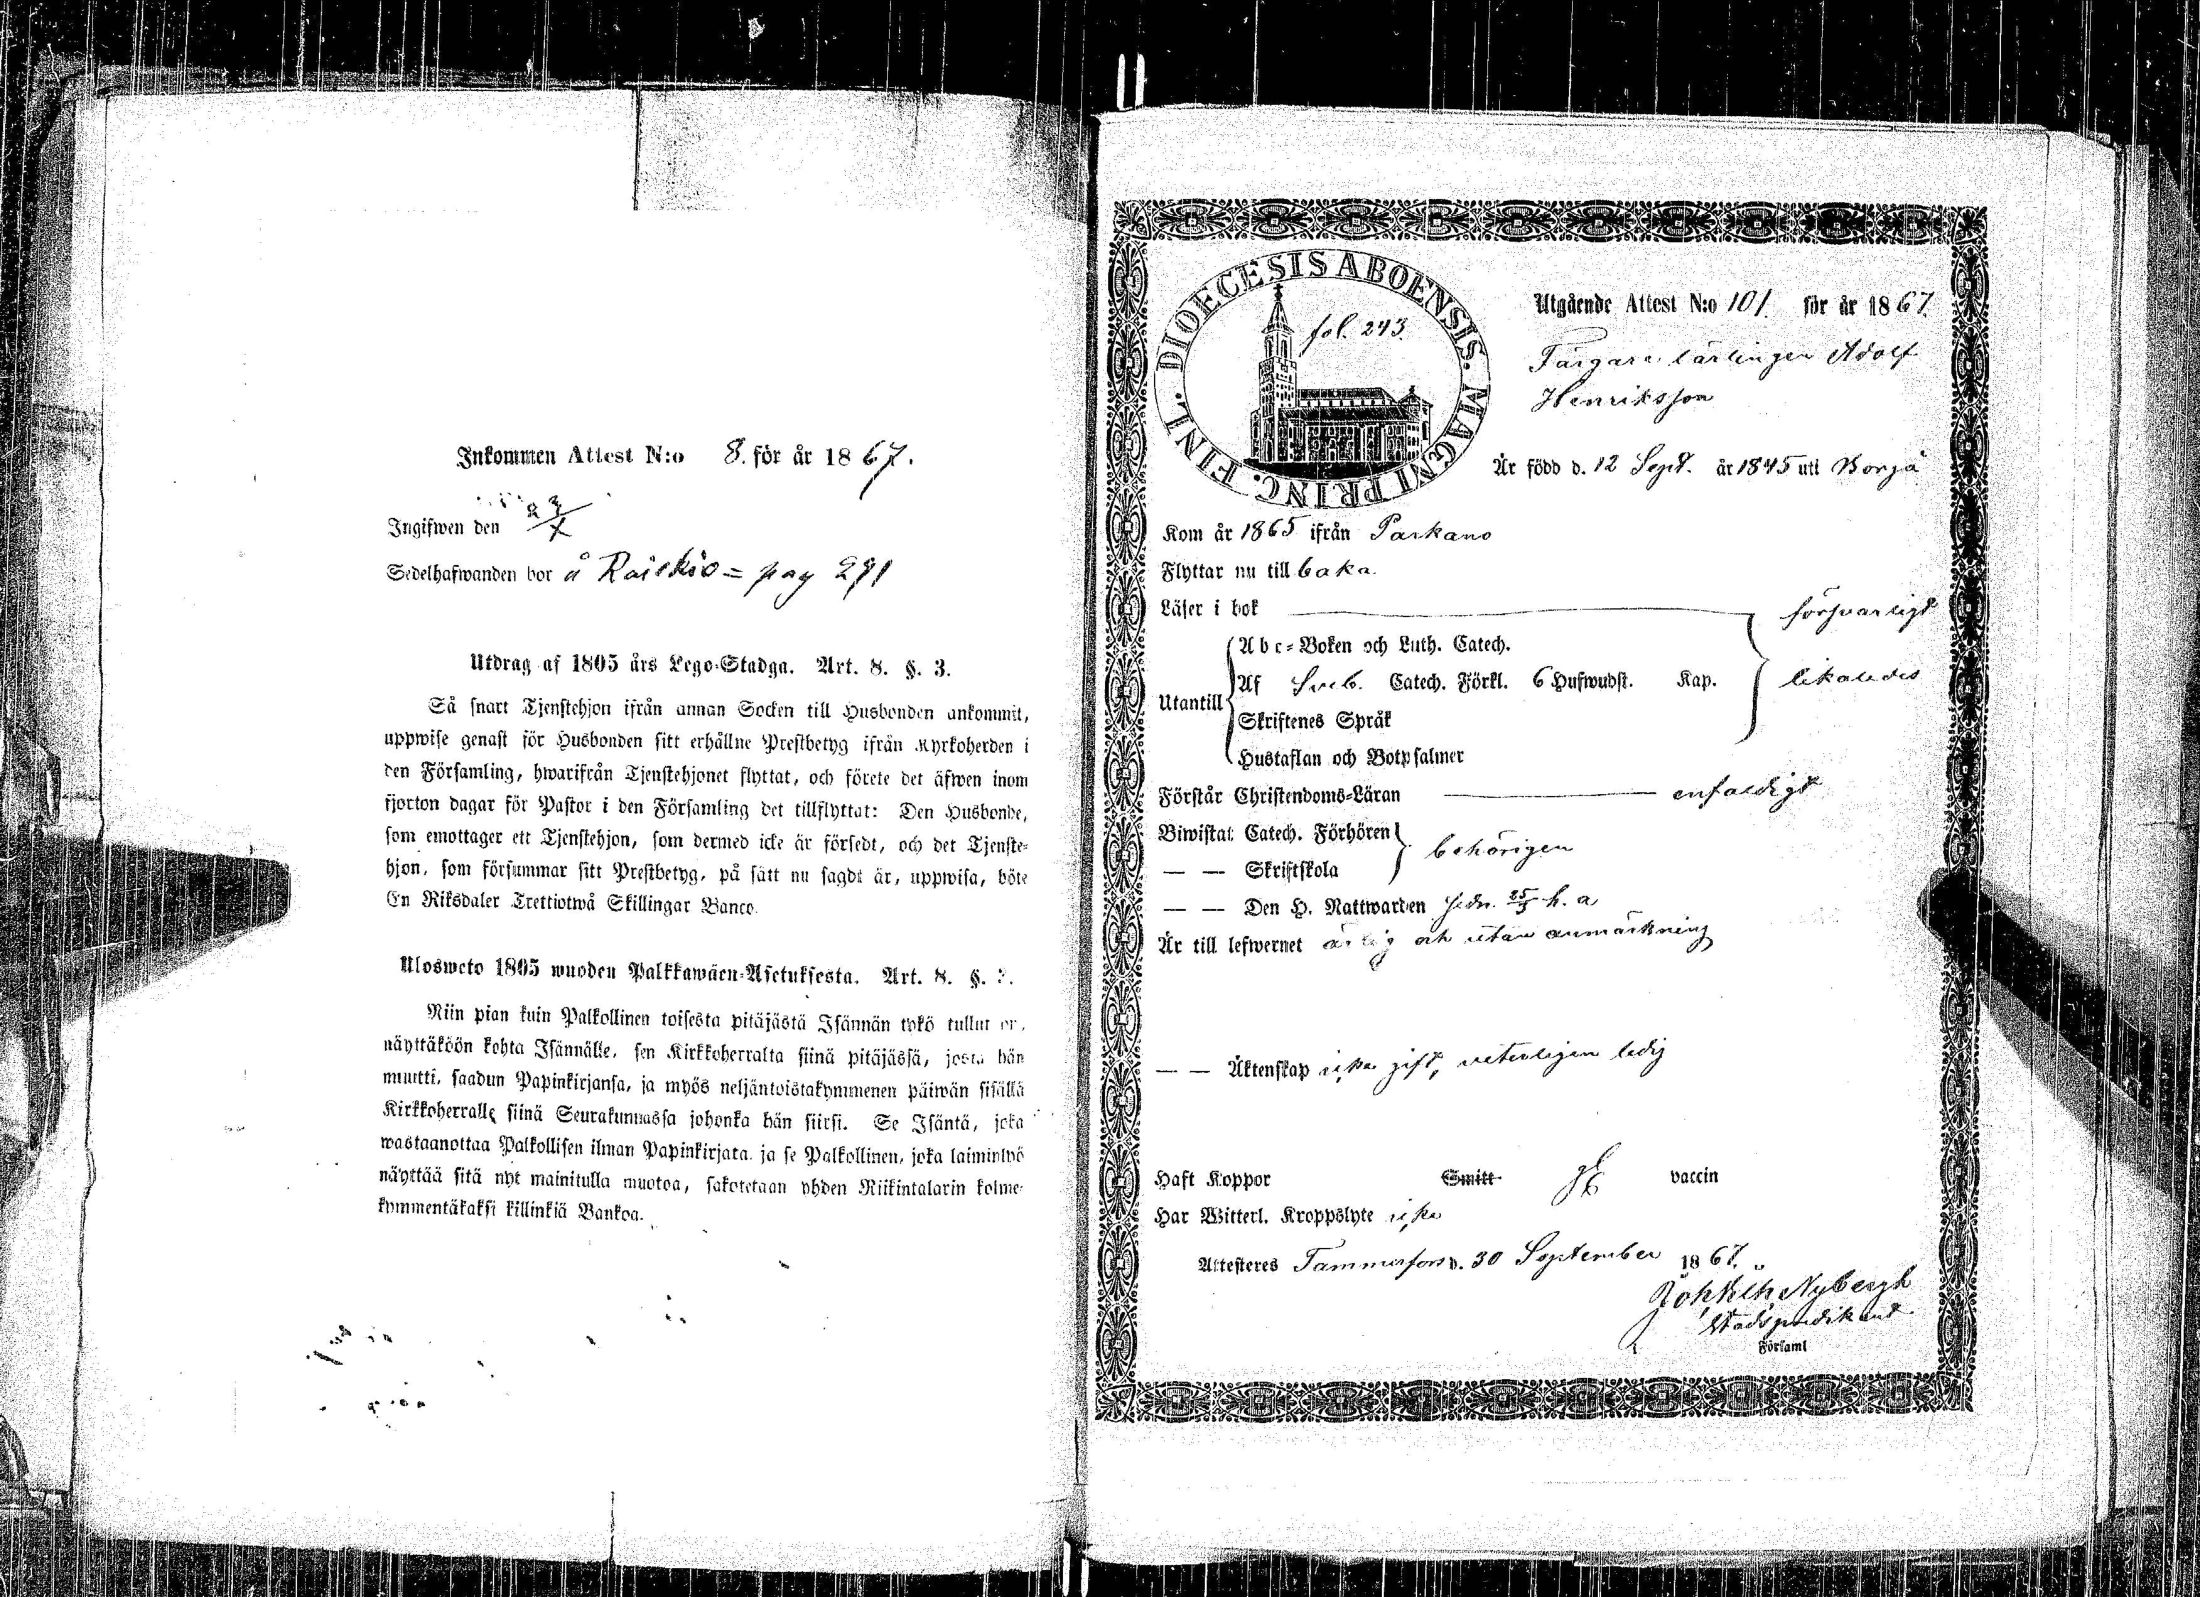 Inkommen Attest N:o 8. för år 1867.
Ingifwen den 23/X
Sedelhafwanden bor å Raiskio = pag 291
Utdrag af 1805 års Lego-Stadga. Art. 8. §. 3.
Så snart Tjenstehjon ifrån annan Socken till Husbonden ankommit,
uppwise genast för Husbonden sitt erhållne Prestbetyg ifrån Kyrkoherden i
den Församling, hwarifrån Tjenstehjonet flyttat, och förete det äfwen inom
fjorton dagar för Pastor i den Församling det tillflyttat: Den Husbonde,
som emottager ett Tjenstehjon, som dermed icke är försedt, och det Tjenste-
hjon, som försummar sitt Prestbetyg, på sätt nu sagdt är, uppwisa, böte
En Riksdaler Trettiotwå Skillingar Banco.
Ulosweto 1805 wuoden Palkkawäen-Asetuksesta. Art. 8. §.
Niin pian kuin Palkollinen toisesta pitäjästä Isännän tykö tullut on,
näyttäköön kohta Isännälle, sen Kirkkoherralta siinä pitäjässä, josta hän
muutti, saadun Papinkirjansa, ja myös neljäntoistakymmenen päiwän sisällä
Kirkkoherralle siinä Seurakunnassa johonka hän siirsi. Se Isäntä, joka
wastaanottaa Palkollisen ilman Papinkirjata, ja se Palkollinen, joka laiminlyö
näyttää sitä nyt mainitulla muotoa, sakotetaan yhden Riikintalarin kolme-
kymmentäkaksi killinkiä Bankoa.
FINL. DIOECESIS ABOENSIS. MAGNI PRINC.
fol. 243.
Utgående Attest N:o 101. för år 1867.
Färgare lärlingen Adolf
Henriksson
Är född d. 12 Sept. år 1845 uti Borgå
Kom år 1865 ifrån Parkano
Flyttar nu till baka.
Läser i bok försvarligt
Abc-Boken och Luth. Catech.
Utantill Af Sveb. Catech. Förkl. 6 Hufwudst. Kap. likaledes
Skriftenes Språk
Hustaflan och Botpsalmer
Förstår Christendoms-Läran enfaldigt
Biwistat Catech. Förhören behörigen
— — Skriftskola
— — Den H. Nattwarden sedn. 25/3 h. a.
Är till lefwernet ärlig och utan anmärkning
— — Äktenskap icke gift, veterligen ledig
Haft Koppor Smitt vaccin
Har Witterl. Kroppslyte icke
Attesteres Tammerfors d. 30 September 1867.
Nybergh
Stadspredikant
Förlaml